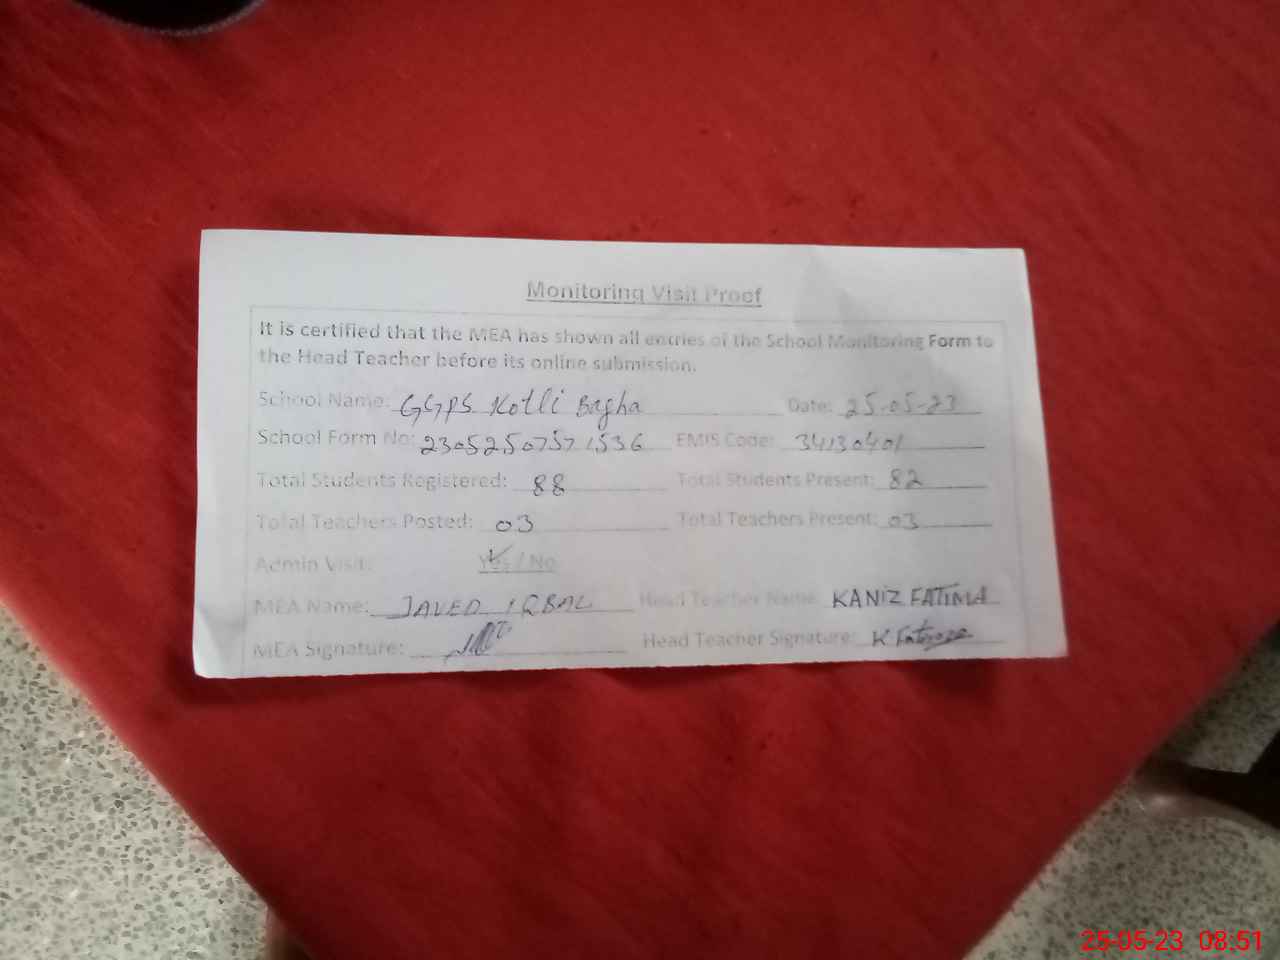 Monitoring Visit Proof
It is certified that the MEA has shown all entries of the School Monitoring Form to
the Head Teacher before its online submission.
School Name: GGPS Kotli Bagha Date: 25-05-23
School Form No: 2305250757 1536 EMIS Code: 34130401
Total Students Registered: 88 Total Students Present: 82
Total Teachers Posted: 03 Total Teachers Present: 03
Admin Visit: Yes / No
MEA Name: JAVED IQBAL Head Teacher Name KANIZ FATIMA
MEA Signature: Head Teacher Signature:
25-05-23 08:51